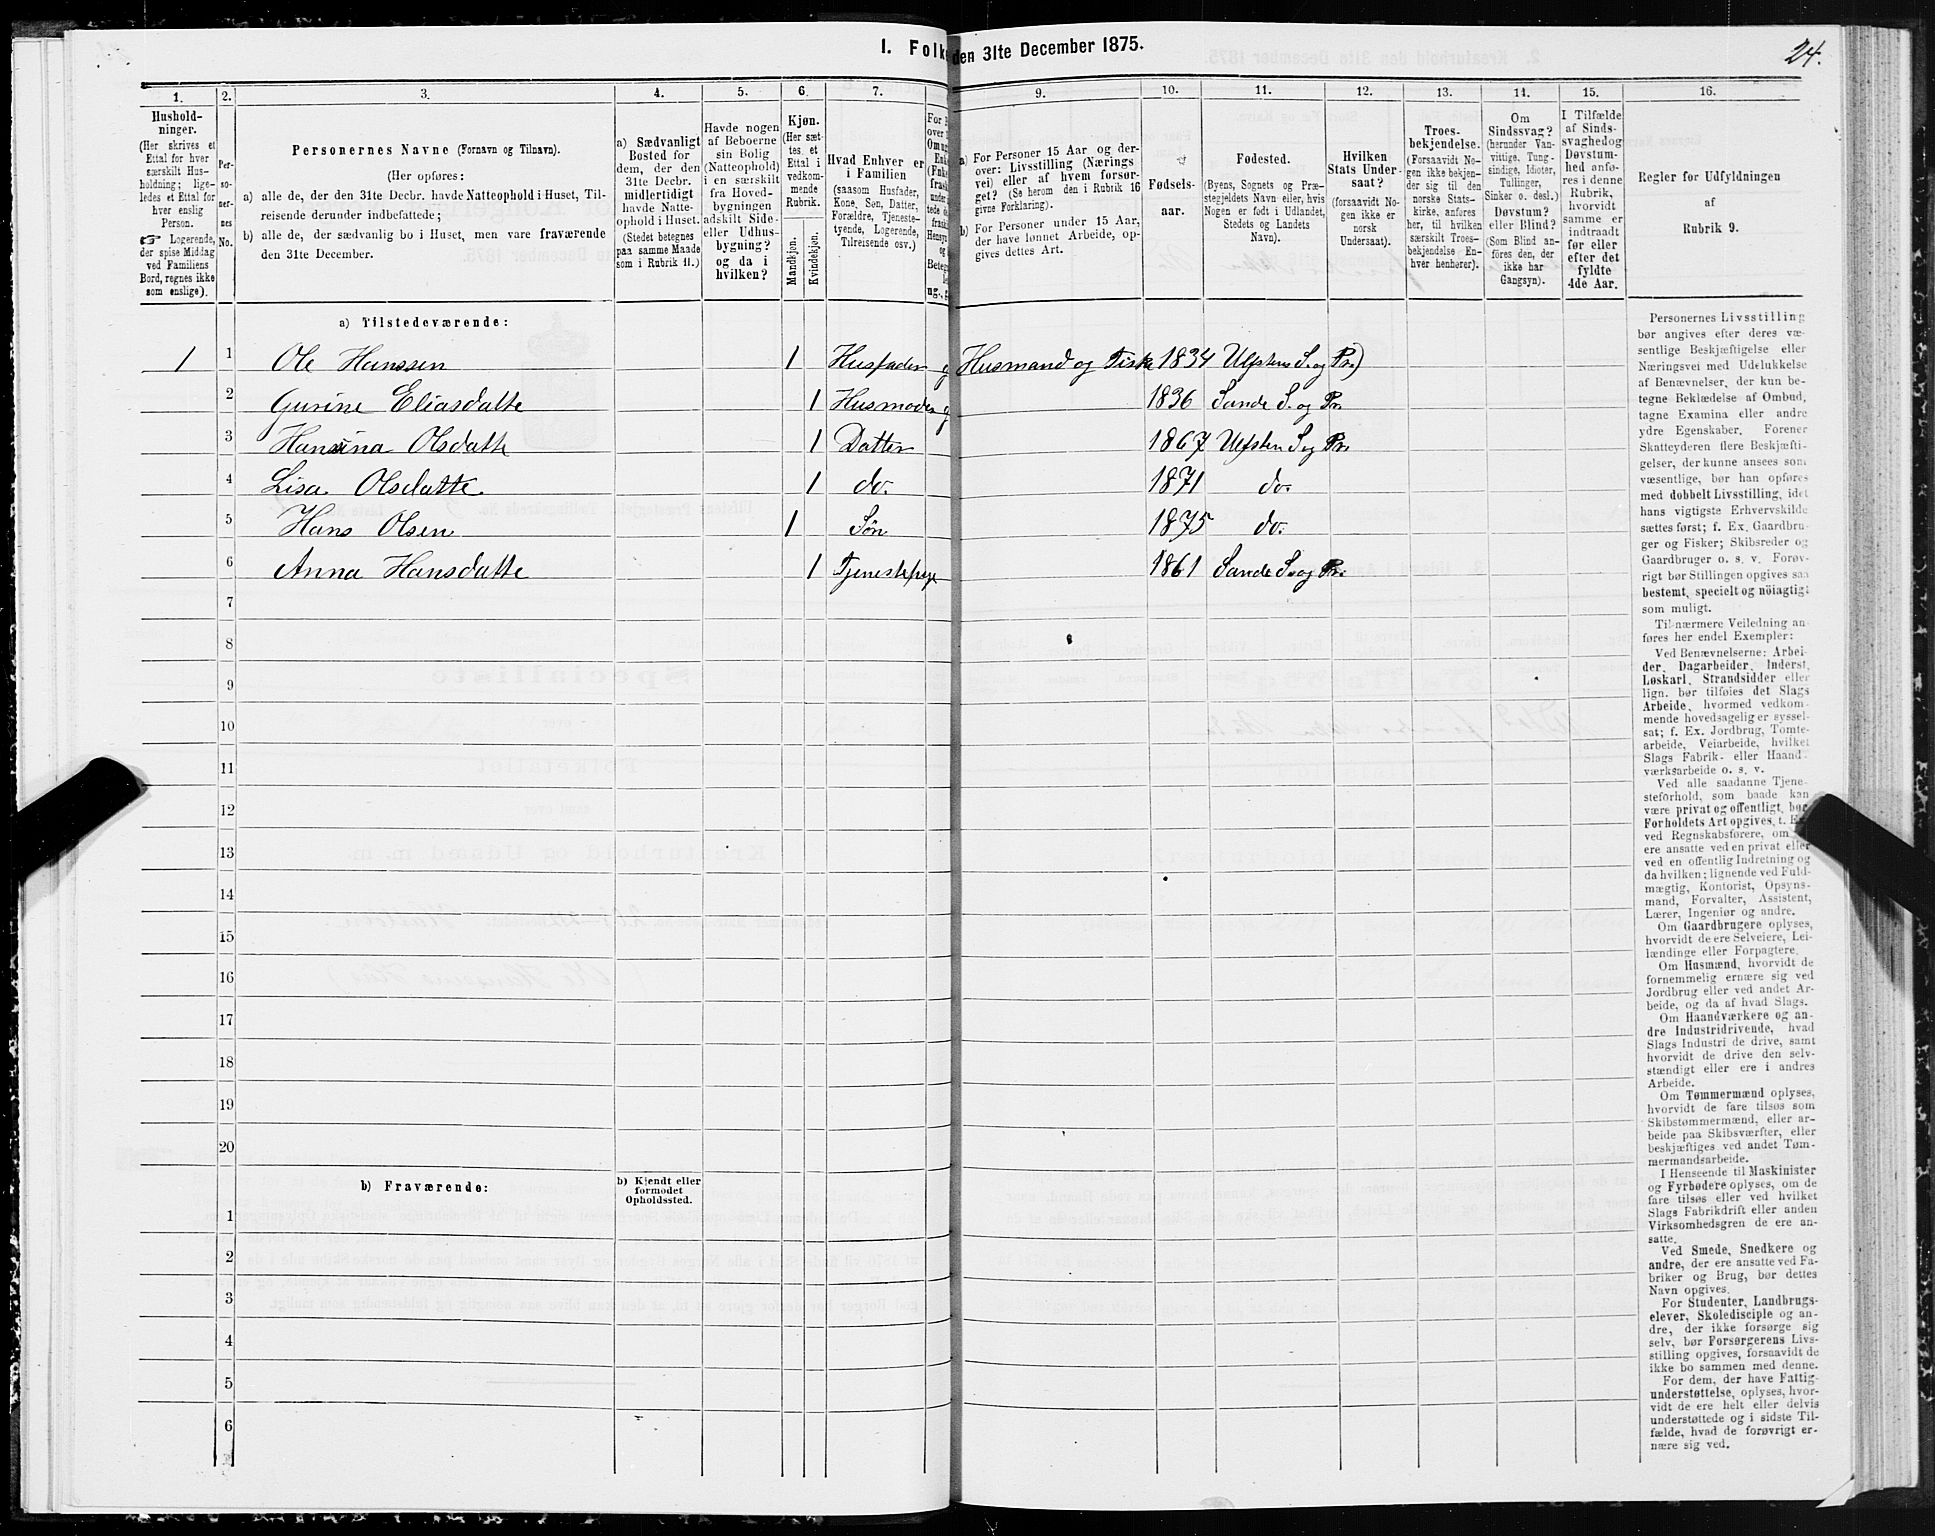 1. Folke den 31te December 1875.
24.
1. 2. 3. 4. 5. 6. 7. 9. 10. 11. 12. 13. 14. 15. 16.
Hushold-
ninger.
(Her skrives et
Ettal for hver
særskilt Hus-
holdning; lige-
ledes et Ettal for
hver enslig
Person.
☞ Logerende,
der spise Middag
ved Familiens
Bord, regnes ikke
som enslige).
Per-
so-
ner-
nes
No.
Personernes Navne (Fornavn og Tilnavn).
(Her opføres:
a) alle de, der den 31te Decbr. havde Natteophold i Huset, Til-
reisende derunder indbefattede;
b) alle de, der sædvanlig bo i Huset, men vare fraværende
den 31te December.
a) Sædvanligt
Bosted for
dem, der den
31te Decbr.
midlertidigt
havde Natte-
ophold i Huset.
(Stedet betegnes
paa samme Maade
som i Rubrik 11.)
Havde nogen
af Beboerne
sin Bolig
(Natteophold)
i en særskilt
fra Hoved-
bygningen
adskilt Side-
eller Udhus-
bygning?
og da i
hvilken?
Kjøn.
(Her sæt-
tes et
Ettal i
vedkom-
mende
Rubrik.
Mandkjøn.
Kvindekjøn.
Hvad Enhver er
i Familien
(saasom Husfader,
Kone, Søn, Datter,
Forældre, Tjeneste-
tyende, Logerende,
Tilreisende osv.)
a) For Personer 15 Aar og der-
over: Livsstilling (Nærings
vei) eller af hvem forsør-
get? (Se herom den i Rubrik 16
givne Forklaring).
b) For Personer under 15 Aar,
der have lønnet Arbeide, op-
gives dettes Art.
Fødsels-
aar.
Fødested.
(Byens, Sognets og Præ-
stegjeldets Navn eller, hvis
Nogen er født i Udlandet,
Stedets og Landets
Navn).
Hvilken
Stats Under-
saat?
(forsaavidt No-
gen ikke er
norsk
Undersaat).
Troes-
bekjendelse.
(Forsaavidt No-
gen ikke bekjen-
der sig til den
norske Stats-
kirke, anføres
her, til hvilken
særskilt Troes-
bekjendelse En-
hver henhører).
Om
Sindssvag?
(herunder Van-
vittige, Tung-
sindige, Idioter,
Tullinger,
Sinker o. desl.)
Døvstum?
eller Blind?
(Som Blind an-
føres den, der
ikke har
Gangsyn).
I Tilfælde
af Sinds-
svaghed og
Døvstum-
hed anfø-
res i denne
Rubrik,
hvorvidt
samme er
indtraadt
før eller
efter det
fyldte
4de Aar.
Regler for Udfyldningen
af
Rubrik 9.
a) Tilstedeværende:
1 1 Ole Hanssen 1 Husfader Husmand og Fiske 1834 Ulfsten S. og Pr.)
2 Gurine Eliasdatte 1 Husmoder 1836 Sande S. og Pr.
3 Hansina Olsdatte 1 Datter 1867 Ulfsten S og Pr.
4 Lisa Olsdatte 1 do. 1871 do.
5 Hans Olsen 1 Søn 1875 do.
6 Anna Hansdatte 1 Tjenestepige 1861 Sande S. og Pr.
7
8
9
10
11
12
13
14
15
16
17
18
19
20
b) Fraværende:
b) Kjendt eller
formodet
Opholdssted.
1
2
3
4
5
6
Personernes Livsstilling
bør angives efter deres væ-
sentlige Beskjæftigelse eller
Næringsvei med Udelukkelse
af Benævnelser, der kun be-
tegne Beklædelse af Ombud,
tagne Examina eller andre
ydre Egenskaber. Forener
Skatteyderen flere Beskjæfti-
gelser, der kunne ansees som
væsentlige, bør han opføres
med dobbelt Livsstilling, idet
hans vigtigste Erhvervskilde
sættes først; f. Ex. Gaardbru-
ger og Fisker; Skibsreder og
Gaardbruger o. s. v. Forøv-
rigt bør Stillingen opgives saa
bestemt, specielt og nöiagtigt
som muligt.
Til nærmere Veiledning an-
føres her endel Exempler:
Ved Benævnelserne: Arbei-
der, Dagarbeider, Inderst,
Løskarl, Strandsidder eller
lign. bør tilføies det Slags
Arbeide, hvormed vedkom-
mende hovedsagelig er syssel-
sat; f. Ex. Jordbrug, Tomte-
arbeide, Veiarbeide, hvilket
Slags Fabrik- eller Haand-
værksarbeide o. s. v.
Ved alle saadanne Tjene-
steforhold, som baade kan
være privat og offentligt, bør
Forholdets Art opgives, t. Ex.
ved Regnskabsførere, om
ere ansatte ved en privat eller
ved en offentlig Indretning og
da hvilken; lignende ved Fuld-
mægtig, Kontorist, Opsyns-
mand, Forvalter, Assistent,
Lærer, Ingeniør og andre.
Om Gaardbrugere oplyses,
hvorvidt de ere Selveiere, Lei-
lændinge eller Forpagtere.
Om Husmænd, hvorvidt de
fornemmelig ernære sig ved
Jordbrug eller ved andet Ar-
beide, og da af hvad Slags.
Om Haandværkere og an-
dre Industridrivende, hvad
Slags Industri de drive, samt
hvorvidt de drive den selv-
stændigt eller ere i andres
Arbeide.
Om Tømmermænd oplyses,
hvorvidt de fare tilsøs som
Skibstømmermænd, eller ar-
beide paa Skibsværfter, eller
beskjæftiges ved andet Tøm-
mermandsarbeide.
I Henseende til Maskinister
og Fyrbødere oplyses, om de
fare tilsøs eller ved hvilket
Slags Fabrikdrift eller anden
Virksomhedsgren de ere an-
satte.
Ved Smede, Snedkere og
andre, der ere ansatte ved Fa-
briker og Brug, bør dettes
Navn opgives.
For Studenter, Landbrugs-
elever, Skoledisciple og an-
dre, der ikke forsørge sig
selv, bør Forsørgerens Livs-
stilling opgives, forsaavidt de
ikke bo sammen med denne.
For dem, der have Fattig-
understøttelse, oplyses, hvor-
vidt de ere helt eller delvis
understøttede og i sidste Til-
fælde, hvad de forøvrigt er-
nære sig ved.